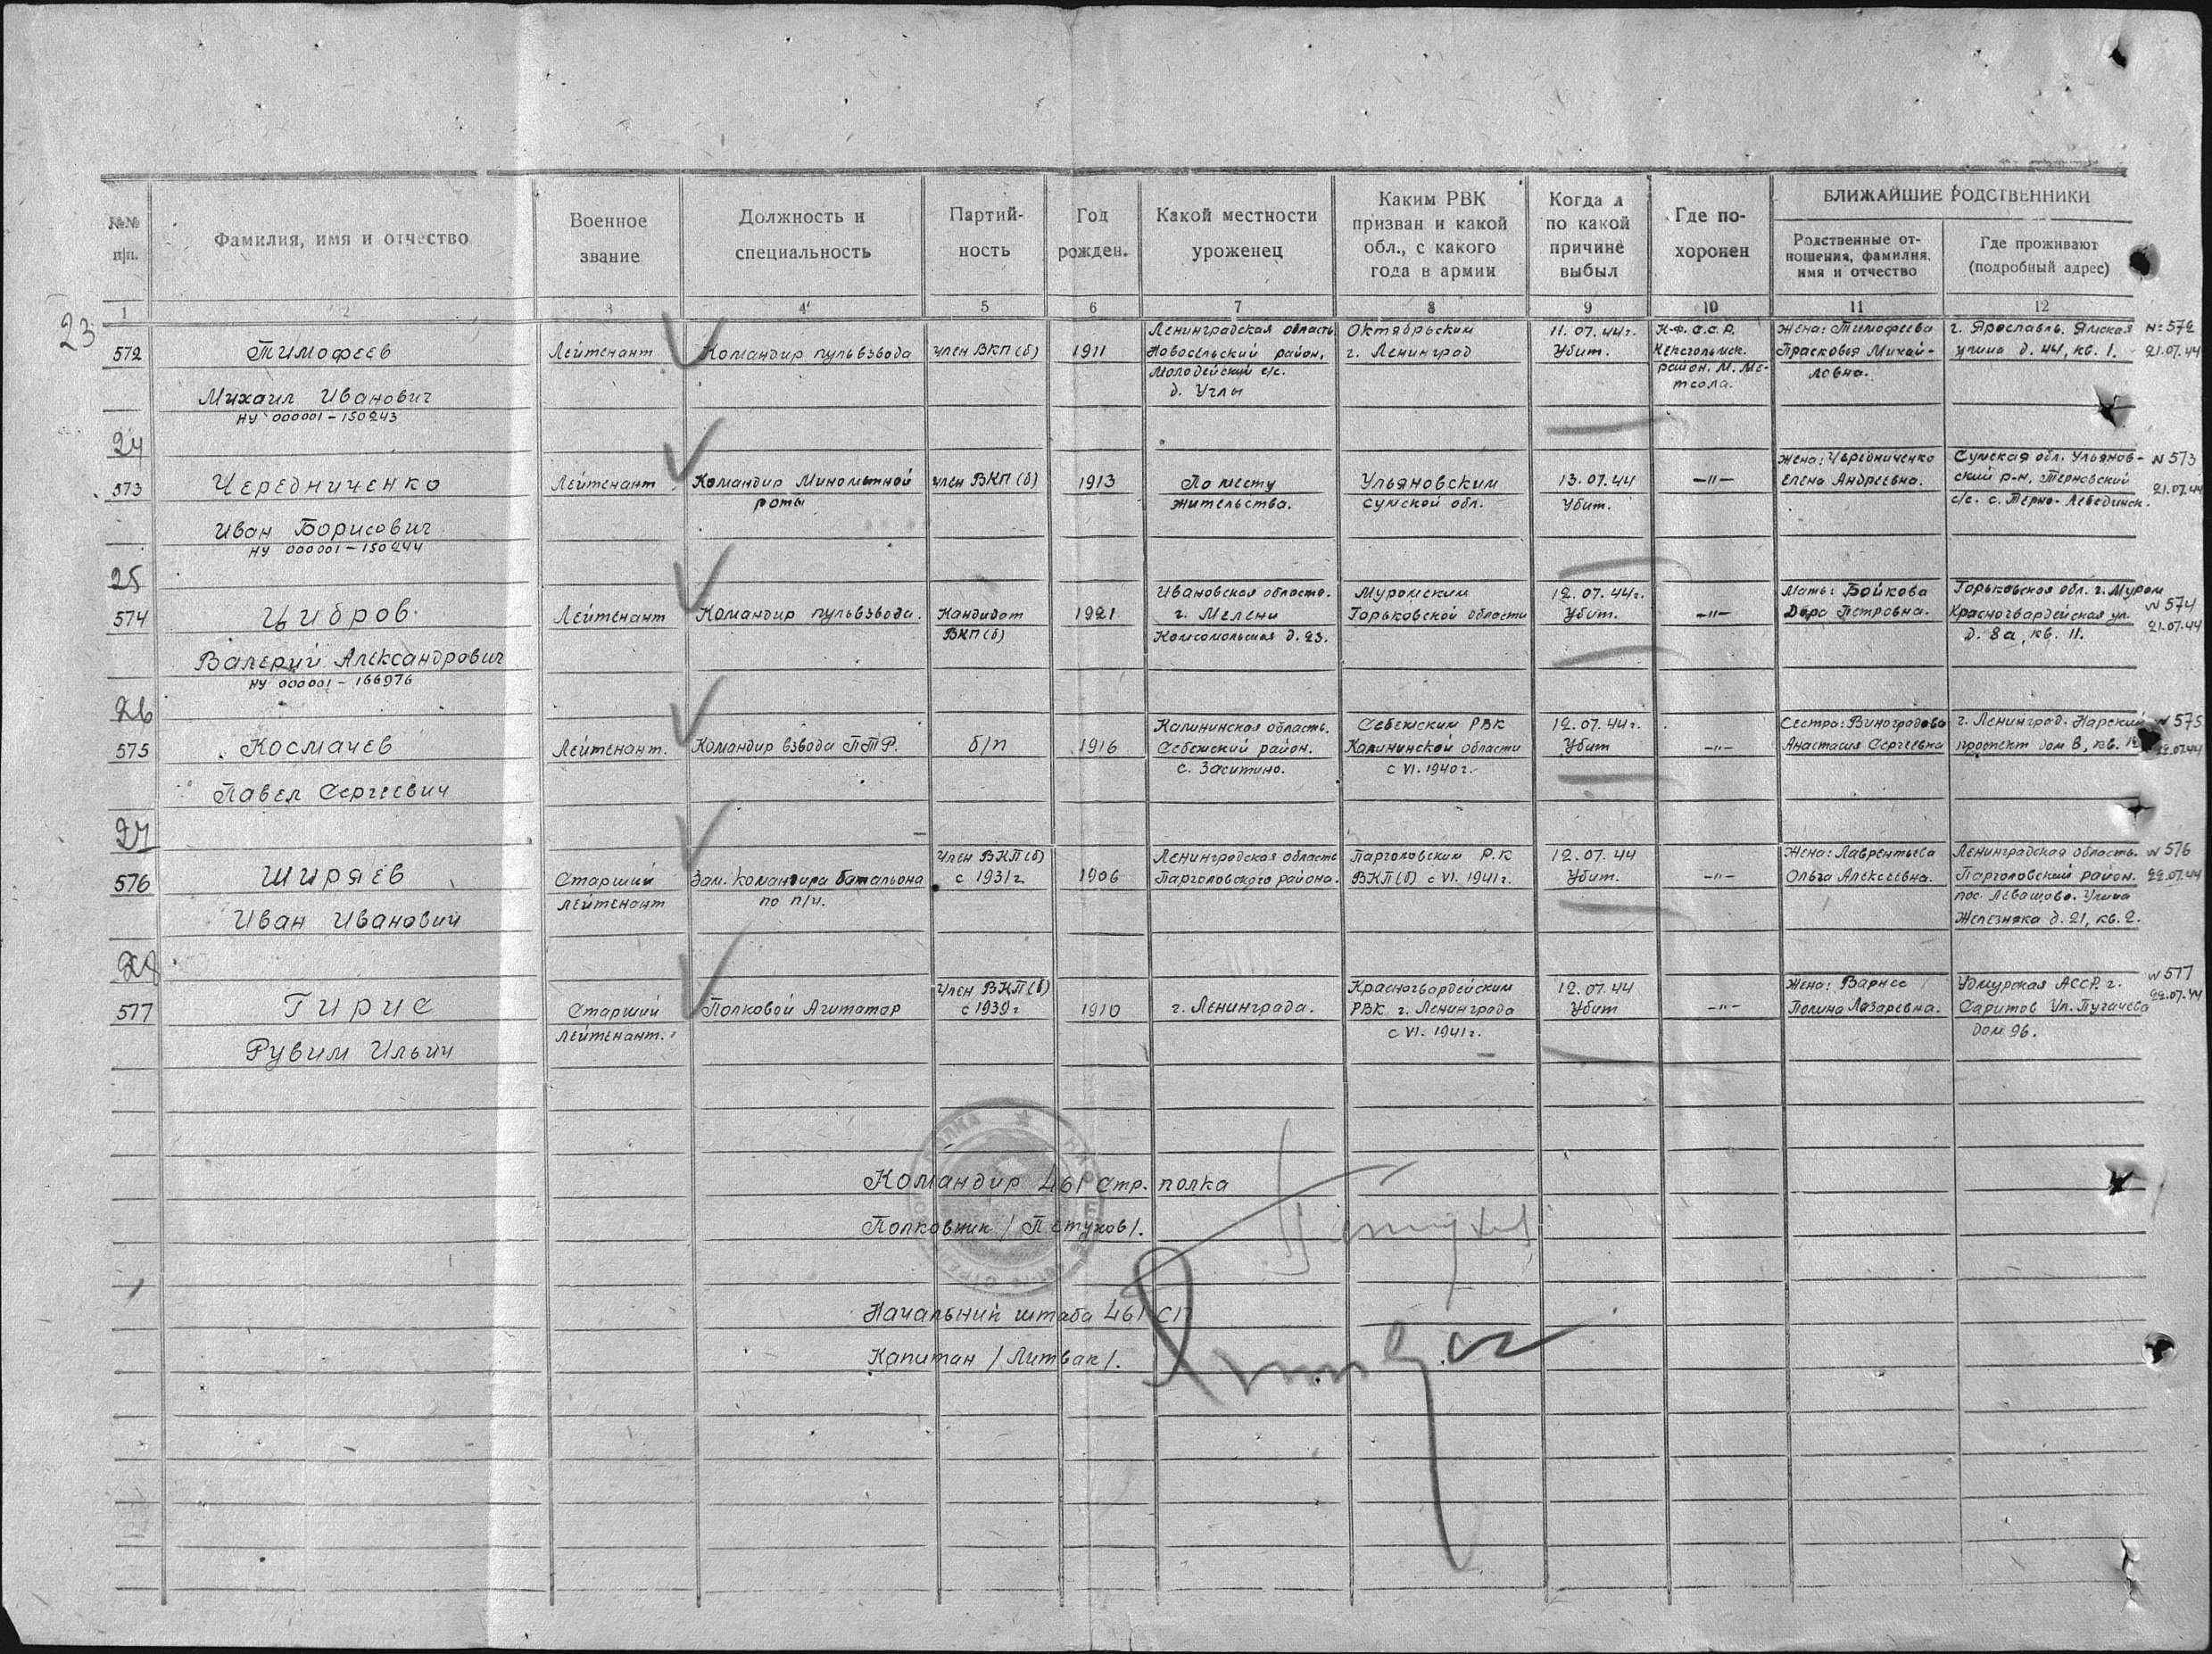 №№ п/п.
Фамилия, имя и отчество
Военное звание
Должность и специальность
Партий-ность
Год рожден.
Какой местности уроженец
Каким РВК призван и какой обл., с какого года в армии
Когда и по какой причине выбыл
Где по-хоронен
БЛИЖАЙШИЕ РОДСТВЕННИКИ
Родственные от-ношения, фамилия, имя и отчество
Где проживают (подробный адрес)
1 2 3 4 5 6 7 8 9 10 11 12
23
572
Тимофеев
Михаил Иванович
НУ 000001-150243
Лейтенант
Командир пульвзвода
член ВКП(б)
1911
Ленинградская область
Новосельский район,
Молодейский с/с.
д. Углы
Октябрьским
г. Ленинград
11.07.44г.
Убит.
К-Ф.С.С.Р.
Кексгольмск.
район. М. Ме-
тсола.
Жена: Тимофеева
Прасковья Михай-
ловна.
г. Ярославль. Ямская
улица д. 44, кв. 1.
N: 572
21.07.44
24
573
Чередниченко
Иван Борисович
НУ 000001-150244
Лейтенант
Командир Минометной
роты
член ВКП(б)
1913
По месту
жительства.
Ульяновским
Сумской обл.
13.07.44
Убит.
-"-
Жена: Чередниченко
Елена Андреевна.
Сумская обл. Ульянов-
ский р-н, Терновский
с/с. с. Терно-Лебединск.
N 573
21.07.44
25
574
Цибров.
Валерий Александрович
НУ 000001-166976
Лейтенант
Командир пульвзвода.
Кандидат
ВКП(б)
1921
Ивановская область.
г. Мелени
Комсомольская д. 23.
Муромским
Горьковской области
12.07.44г.
Убит.
-"-
Мать: Бойкова
Дора Петровна.
Горьковская обл. г. Муром
Красногвардейская ул.
д. 8а, кв. 11.
N 574
21.07.44
26
575
Космачев
Павел Сергеевич
Лейтенант.
Командир взвода ПТР.
б/п
1916
Калининская область.
Себежский район.
с. Заситино.
Себежским РВК
Калининской области
с VI. 1940г.
12.07.44г.
Убит
-"-
Сестра: Виноградова
Анастасия Сергеевна
г. Ленинград. Нарский
проспект дом 8, кв. 12
N 575
22.07.44
27
576
Ширяев
Иван Иванович
Старший
лейтенант
Зам. командира батальона
по п/ч.
Член ВКП(б)
с 1931г
1906
Ленинградская область
Парголовского района.
Парголовским Р.К
ВКП(б) с VI. 1941г.
12.07.44
Убит.
-"-
Жена: Лаврентьева
Ольга Алексеевна.
Ленинградская область.
Парголовский район.
пос. Левашово. Улица
Железняка д. 21, кв. 2.
N 576
22.07.44
28
577
Гирис
Рувим Ильич
Старший
Лейтенант.
Полковой Агитатор
Член ВКП(б)
с 1939г
1910
г. Ленинграда.
Красногвардейским
РВК г. Ленинграда
с VI. 1941г.
12.07.44
Убит
-"-
Жена: Варнес
Полина Лазаревна.
Удмурская АССР. г.
Саритов Ул. Пугачева
дом 96.
N 577
22.07.44
Командир 461 стр. полка
Полковник /Петухов/.
Начальник штаба 461 СП
Капитан /Литвак/.